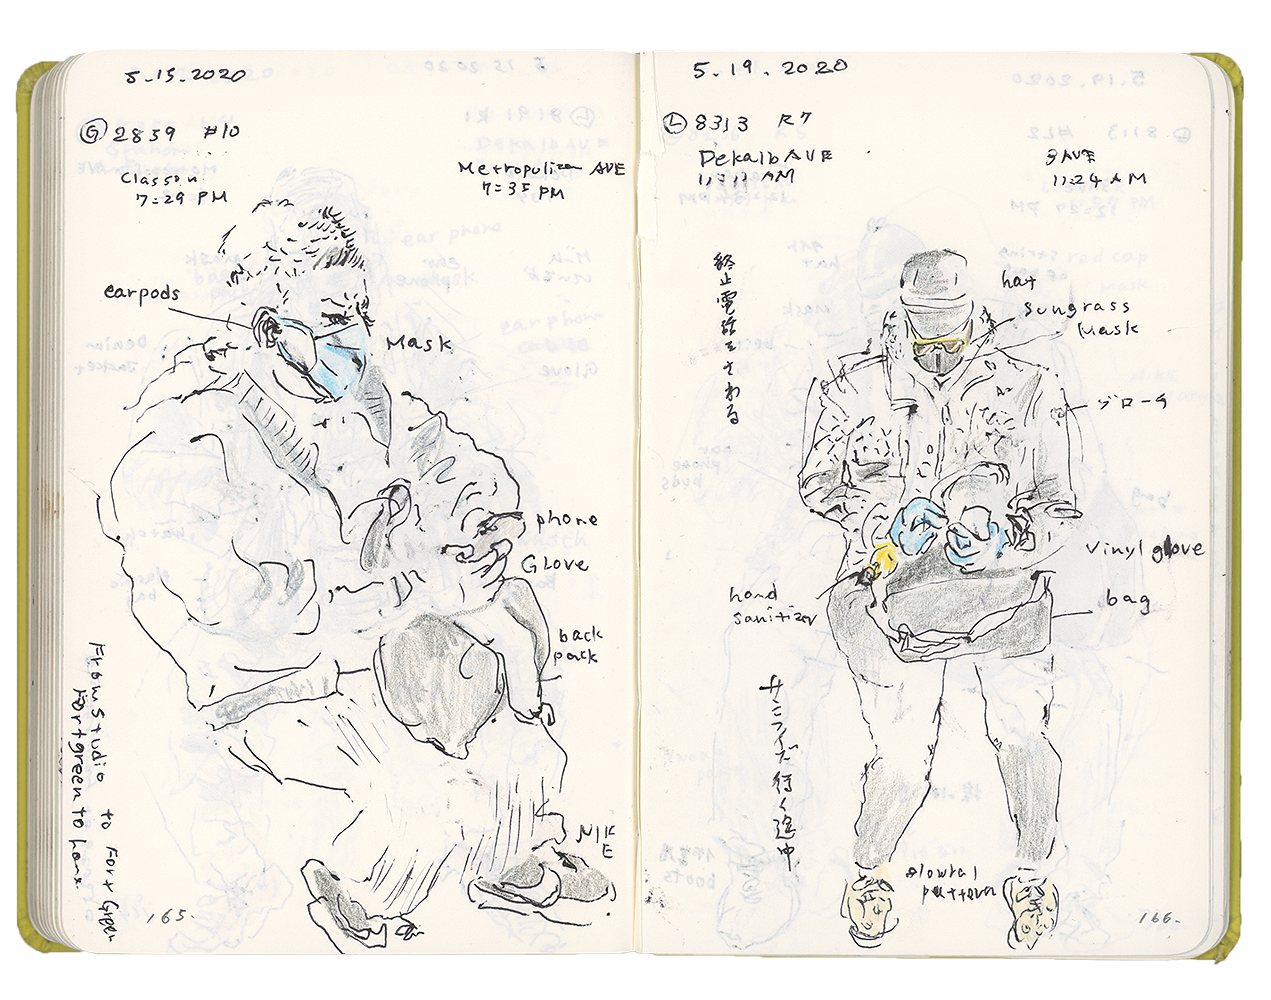 5.15.2020
Ⓖ 2859 #10
Classon
7:29 PM
Metropolitan AVE
7:35 PM
earpods
Mask
phone
Glove
back
pack
NIKE
From Studio to Fort Green
Fortgreen to home.
165.
5.19.2020
Ⓛ 8313 R7
Dekalb AVE
11:11 AM
3 AVE
11:24 AM
hat
sungrass
Mask
vinyl glove
bag
hand
sanitizer
flowral
pattern
166.